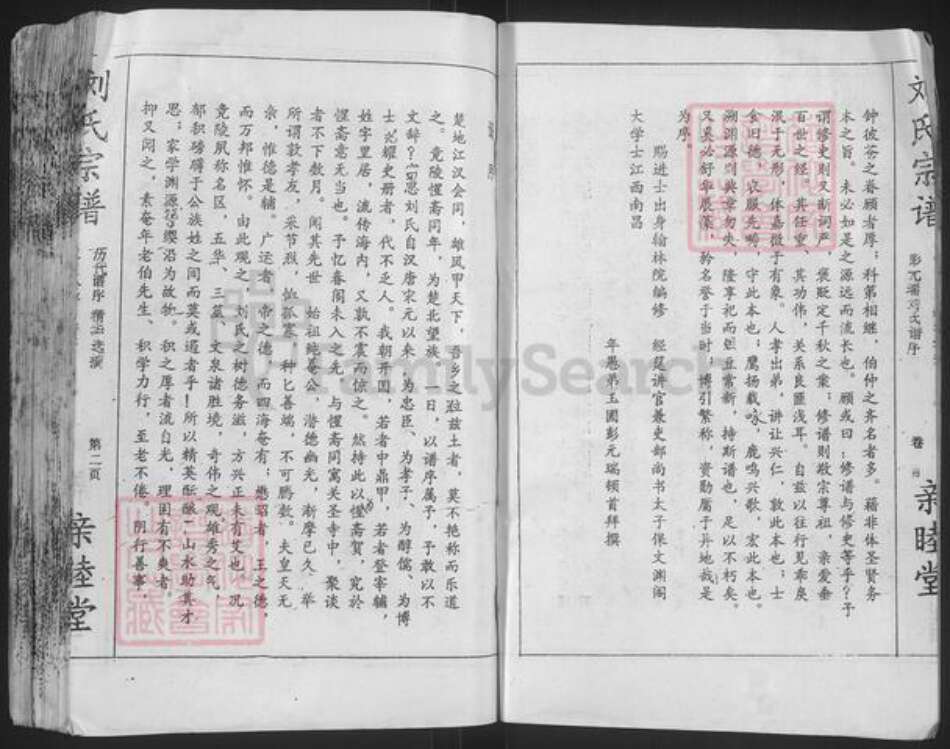 刘氏宗谱
彭元瑞刘氏谱序
卷
亲睦堂
钟彼苍之眷顾者厚；科第相继，伯仲之齐名者多。藉非体圣贤务
本之旨，未必如是之源远而流长也。顾或曰：修谱与修史等乎？予
谓修史则义断词严，褒贬定千秋之案；修谱则敬宗尊祖，亲爱垂
百世之经。其任重、其功伟，关系良匪浅耳。自兹以往行见乖戾
泯于无形，休嘉徵于有象。人孝出弟，讲让兴仁，敦此本也；士
食旧德，农服先畴，守此本也；鹰扬载咏，鹿鸣兴歌，宏此本也。
溯渊源则典章勿失，隆享祀而俎豆常新，持斯谱也，足以不朽矣。
又奚必舒华展藻，矜名誉于当时；博引繁称，资勋属于异地哉是
为序。
赐进士出身翰林院编修 经筵讲官兼吏部尚书太子保文渊阁
大学士江西南昌
年愚弟王圃彭元瑞顿首拜撰
楚地江汉会同，雄风甲天下，吾乡之拉兹土者，莫不艳称而乐道
之。竟陵惺斋同年，为楚北望族，一日，以谱序属予，予敢以不
文辞？窃思刘氏自汉唐宋元以来，为忠臣、为孝子、为醇儒、为博
士光耀史册者，代不乏人。我朝开国，若者中鼎甲，若者登宰辅，
姓字里居，流传海内，又孰不震而惊之。然持此以为惺斋贺，究于
惺斋意无当也。予忆春闱未入之先，与惺斋同寓关圣寺中，聚谈
者不下数月。闻其先世 始祖纯菴公，潜德幽光，渐摩已久，举
所谓敦孝友，采节烈，恤孤寡，种匕善端，不可胜数。夫皇天无
亲，惟德是辅。广运者，帝之德，而四海奄有；懋昭者，王之德，
而万邦惟怀。由此观之，刘氏之树德务滋，方兴正未有艾也。况
竟陵夙称名区，五华、三澨、文泉诸胜境，奇伟之观雄秀之气，
郁积磅礴于公族姓之间而莫或遏者乎！所以精英酝酿二山水助其才
思；家学渊源簪缨沿为故物。积之厚者流自光，理固有不爽者。
抑又闻之，素菴年老伯先生、积学力行，至老不倦，阴行善事，
刘氏宗谱
历代谱序精华选录
第二页
亲睦堂
FamilySearch